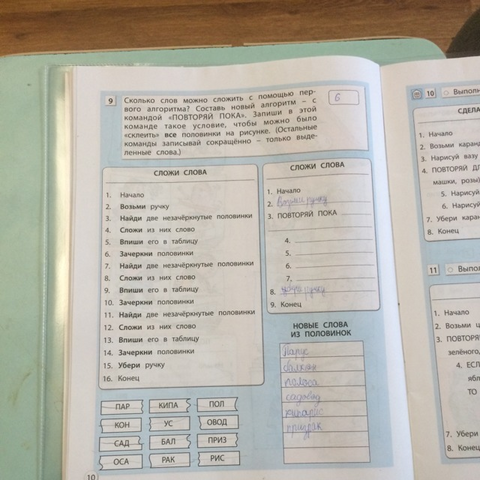 9 Сколько слов можно сложить с помощью пер-
вого алгоритма? Составь новый алгоритм – с
командой «ПОВТОРЯЙ ПОКА». Запиши в этой
команде такое условие, чтобы можно было
«склеить» все половинки на рисунке. (Остальные
команды записывай сокращённо – только выде-
ленные слова.)
6
СЛОЖИ СЛОВА
1. Начало
2. Возьми ручку
3. Найди две незачёркнутые половинки
4. Сложи из них слово
5. Впиши его в таблицу
6. Зачеркни половинки
7. Найди две незачёркнутые половинки
8. Сложи из них слово
9. Впиши его в таблицу
10. Зачеркни половинки
11. Найди две незачёркнутые половинки
12. Сложи из них слово
13. Впиши его в таблицу
14. Зачеркни половинки
15. Убери ручку
16. Конец
СЛОЖИ СЛОВА
1. Начало
2. Возьми ручку
3. ПОВТОРЯЙ ПОКА
4.
5.
6.
7.
8. ручку
9. Конец
НОВЫЕ СЛОВА
ИЗ ПОЛОВИНОК
Парус
балкон
полоса
садовод
кипарис
призрак
ПАР КИПА ПОЛ
КОН УС ОВОД
САД БАЛ ПРИЗ
ОСА РАК РИС
10
10 Выполн
СДЕЛА
1. Начало
2. Возьми каранд
3. Нарисуй вазу
4. ПОВТОРЯЙ ДЛ
машки, розы
5. Нарису
6. Нарисуй
7. Убери каран
8. Конец
11 Выпол
1. Начало
2. Возьми ц
3. ПОВТОРЯ
зелёного,
4. ЕСЛ
ябл
ТО
7. Убери
8. Конец